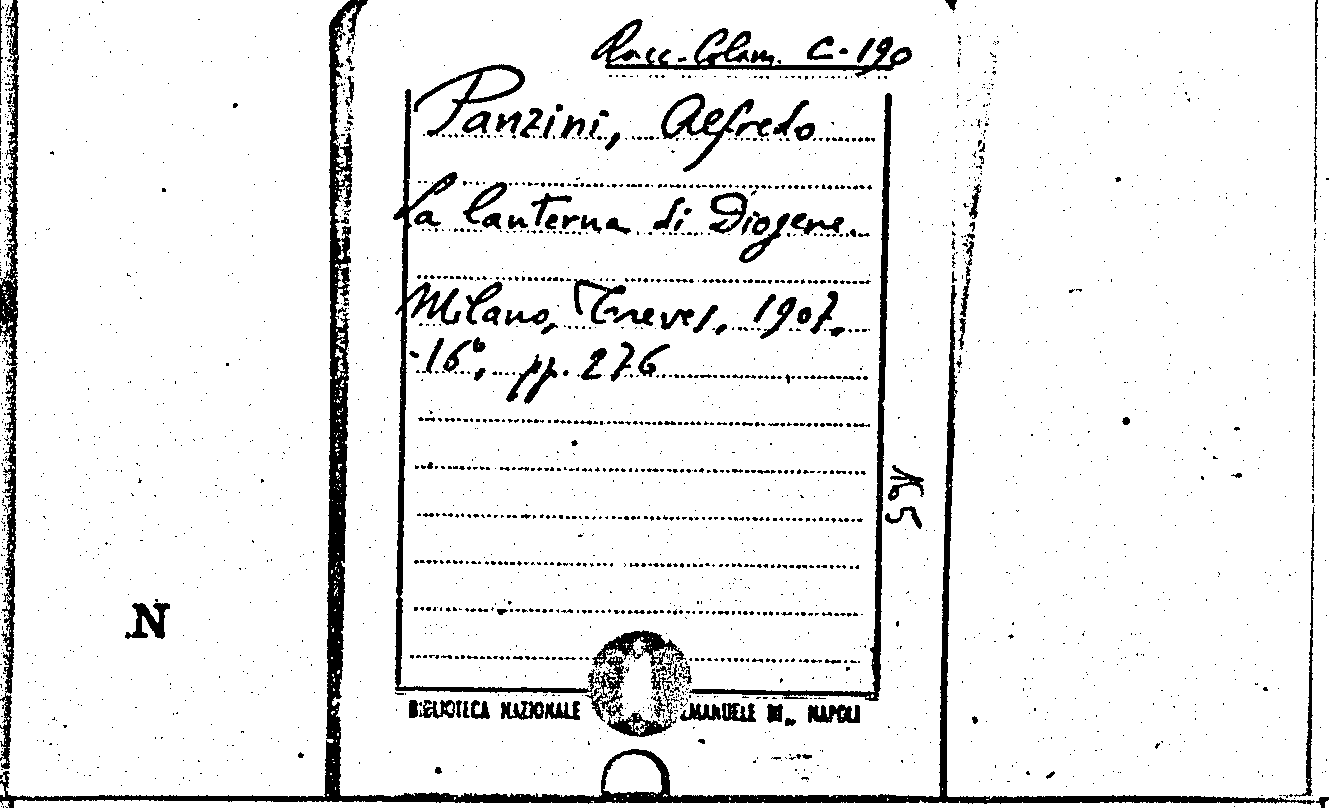 Racc. Colam. C-190
Panzini, Alfredo
La lanterna di Diogene.
Milano, Treves, 1907.
-16°, pp. 276
N
BIBLIOTECA NAZIONALE EMANUELE III., NAPOLI